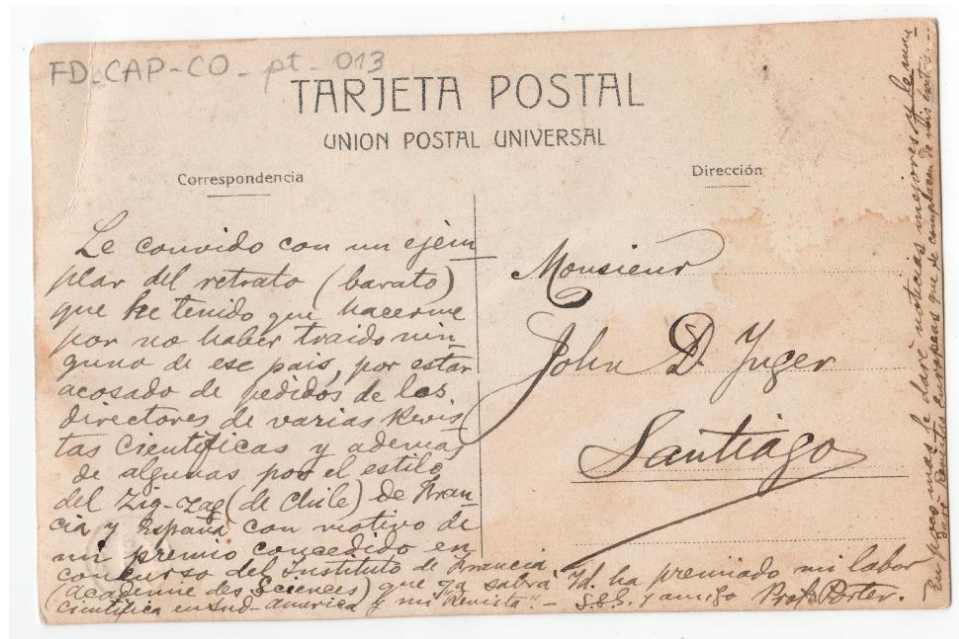 FD-CAP-CO-pt-013
TARJETA POSTAL
UNION POSTAL UNIVERSAL
Correspondencia
Le convido con un ejem
plar del retrato (barato)
que he tenido que hacerme
por no haber traido nin-
guno de ese pais, por estar
acosado de pedidos de los
directores de varias Revis
tas Cientificas y ademas
de algunas por el estilo
del Zig-Zag (de Chile) de Fran-
cia y España con motivo de
mi premio concedido en
concurso del Instituto de Francia
(Academie des Sciences) que ya sabrá Vd. ha premiado mi labor
cientifica en Sud-america y mi "Revista".- S.S.S. y amigo Prof. Porter.
Dirección
Monsieur
John D.
Santiago
En pocos mas le daré noticias mejores y le
para Revistas europeas que se complacen de